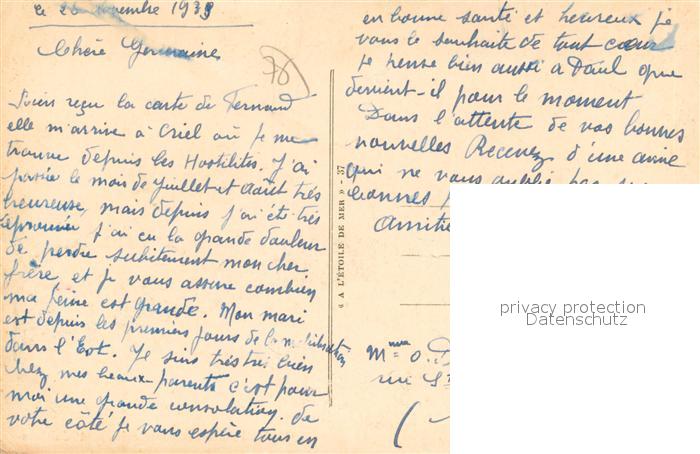 le 26 Novembre 1939
Chère Germaine
Viens reçu la carte de Fernand
elle m'arrive à Criel où je me
trouve depuis les Hostilités. J'ai
passée le mois de Juillet et Août très
heureuse, mais depuis j'ai été très
éprouvée j'ai eu la grande douleur
de perdre subitement mon cher
frère et je vous assure combien
ma peine est grande. Mon mari
est depuis les premiers jours de la mobilisation
dans l'Est. Je suis très très bien
chez mes beaux-parents c'est pour
moi une grande consolation. de
votre côté je vous espère tous en
en bonne santé et heureux je
vous le souhaite de tout cœur
Je pense bien aussi a Paul que
devient-il pour le moment
Dans l'attente de vos bonnes
nouvelles Recevez d'une amie
qui ne vous oublie pas
bonnes
Amitié
« A L'ÉTOILE DE MER » - 37
Mme O.
rue
privacy protection
Datenschutz